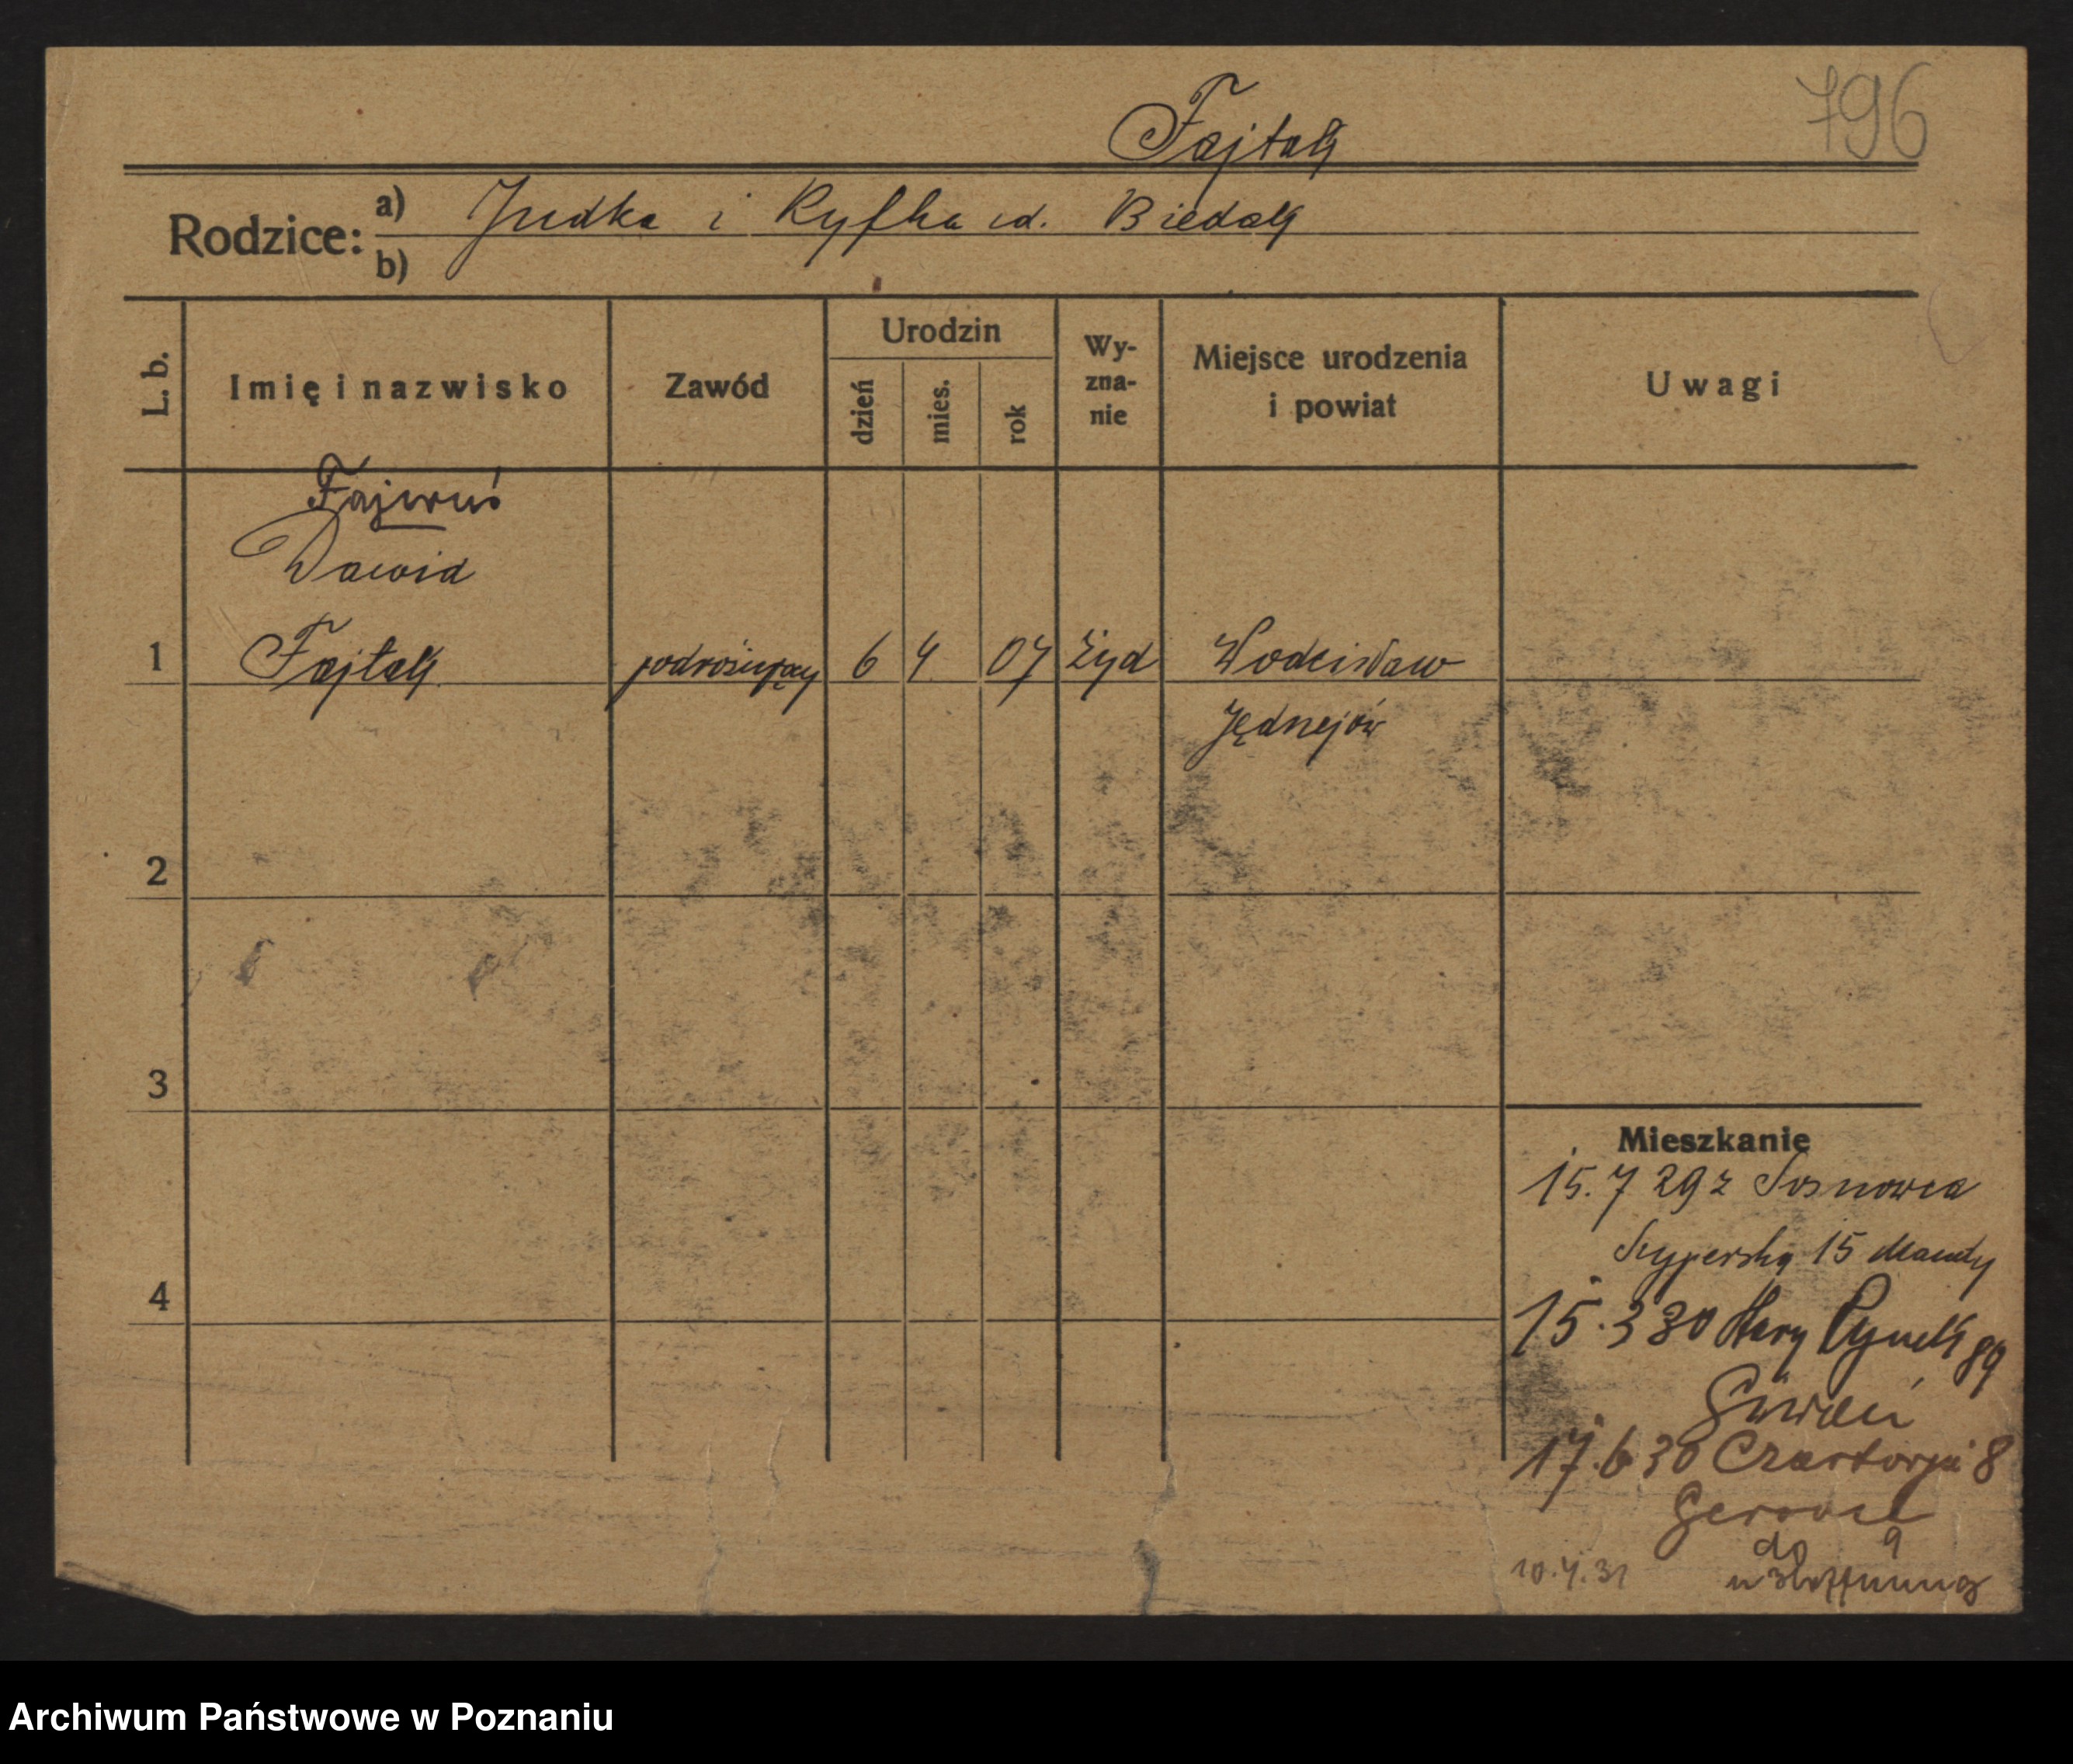 796
Fajtak
Rodzice: a) Judka i Ryfka id. Biedak
b)
L. b. Imię i nazwisko Zawód Urodzin dzień mies. rok Wy-zna-nie Miejsce urodzenia i powiat Uwagi
Fajwuś
Dawid
1 Fajtak podróżujący 6 4 07 żyd Wodzisław
Jędrzejów
2
3
4
Mieszkanie
15.7 29 z Sosnowca
15
15.3 30 Stary Rynek 89
17.6 30 Czartorja 8
do 9
10.4.31
Archiwum Państwowe w Poznaniu